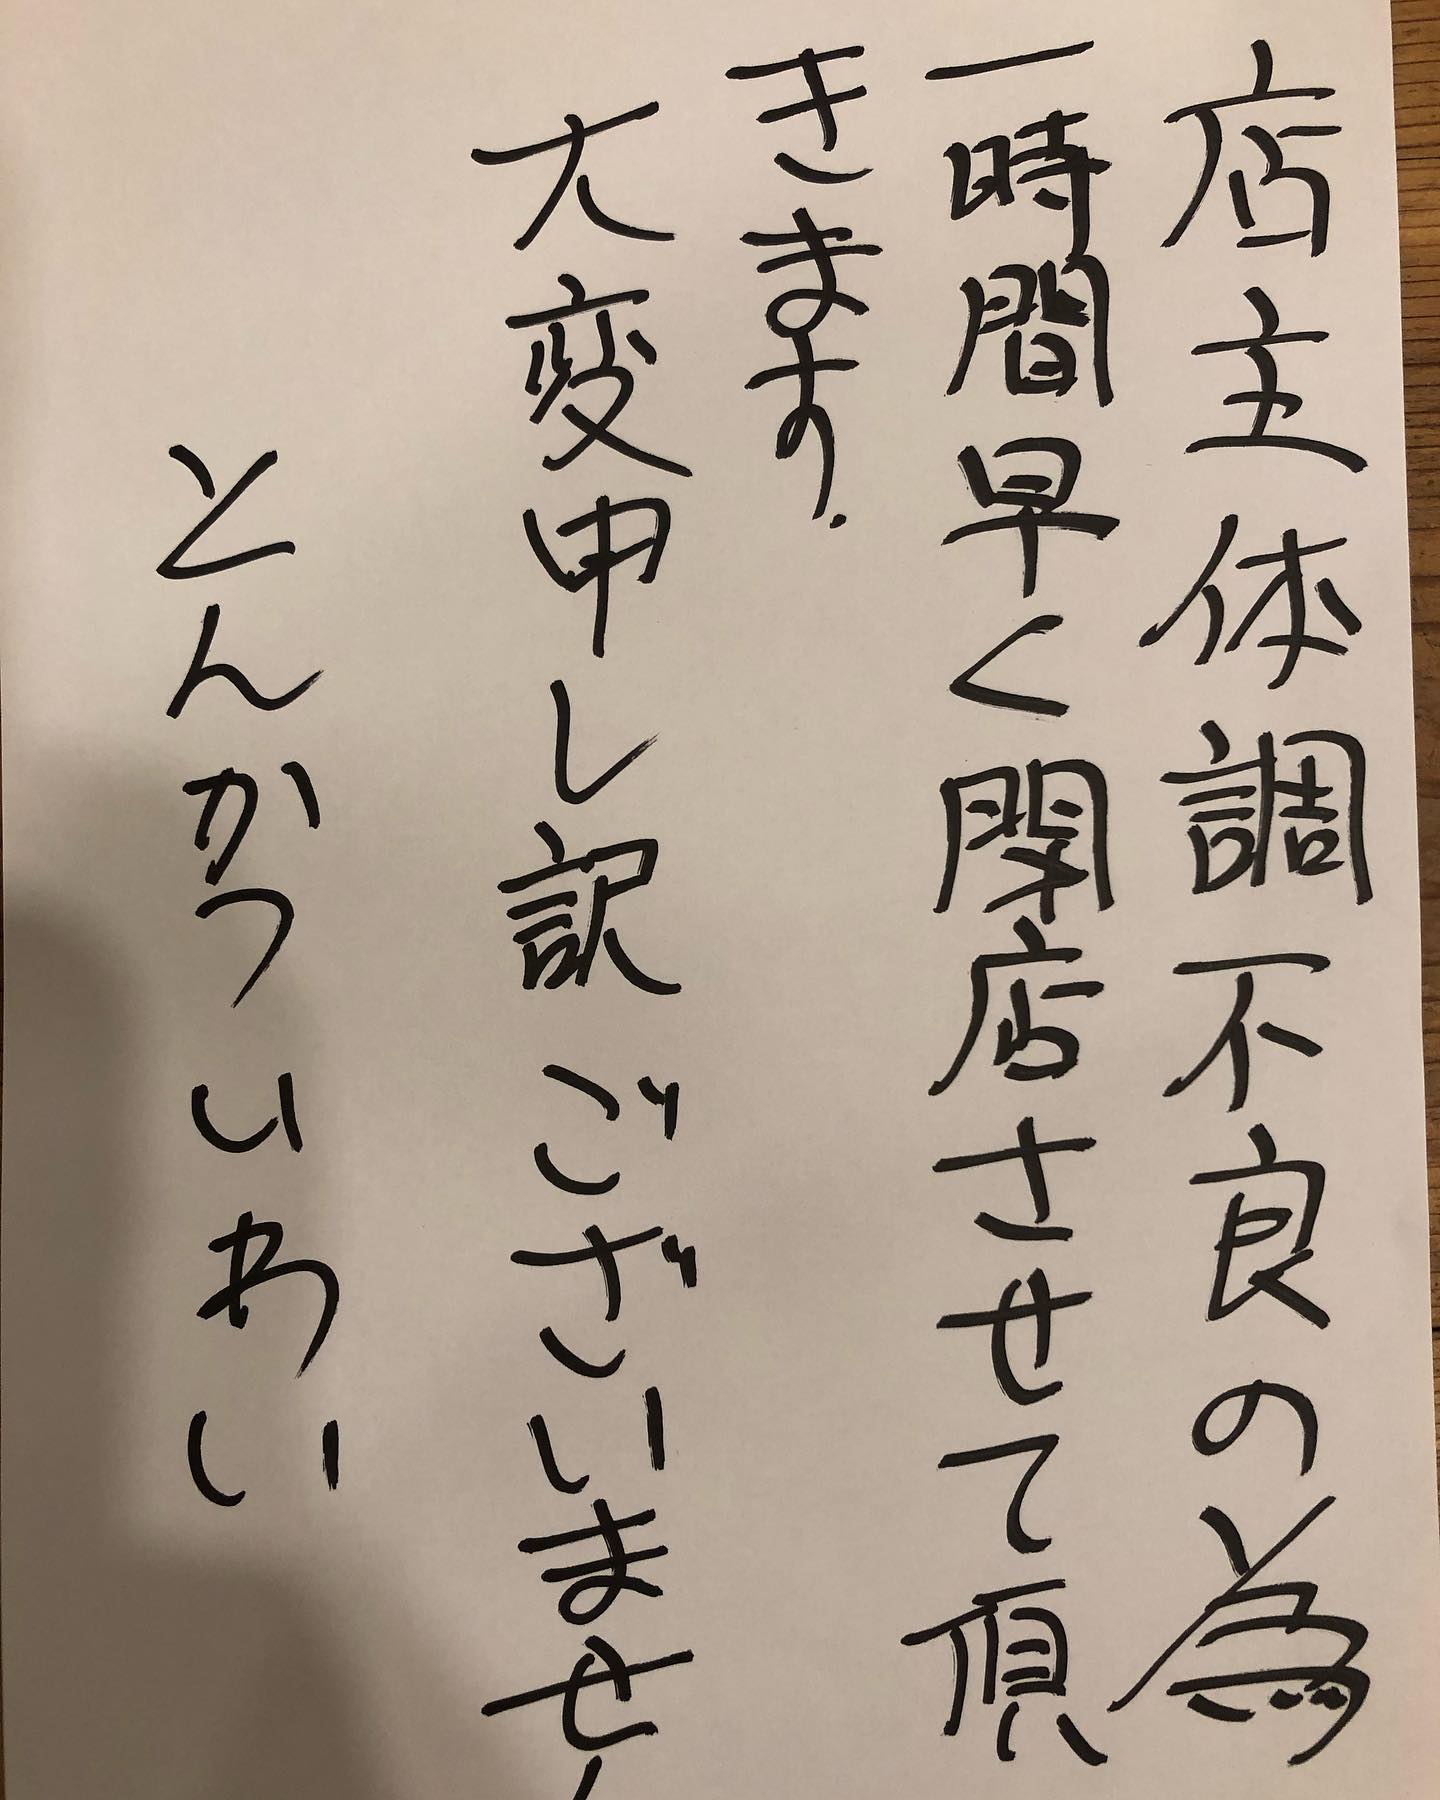 店主体調不良の為
一時間早く閉店させて頂
きます.
大変申し訳ございませ
とんかついわい